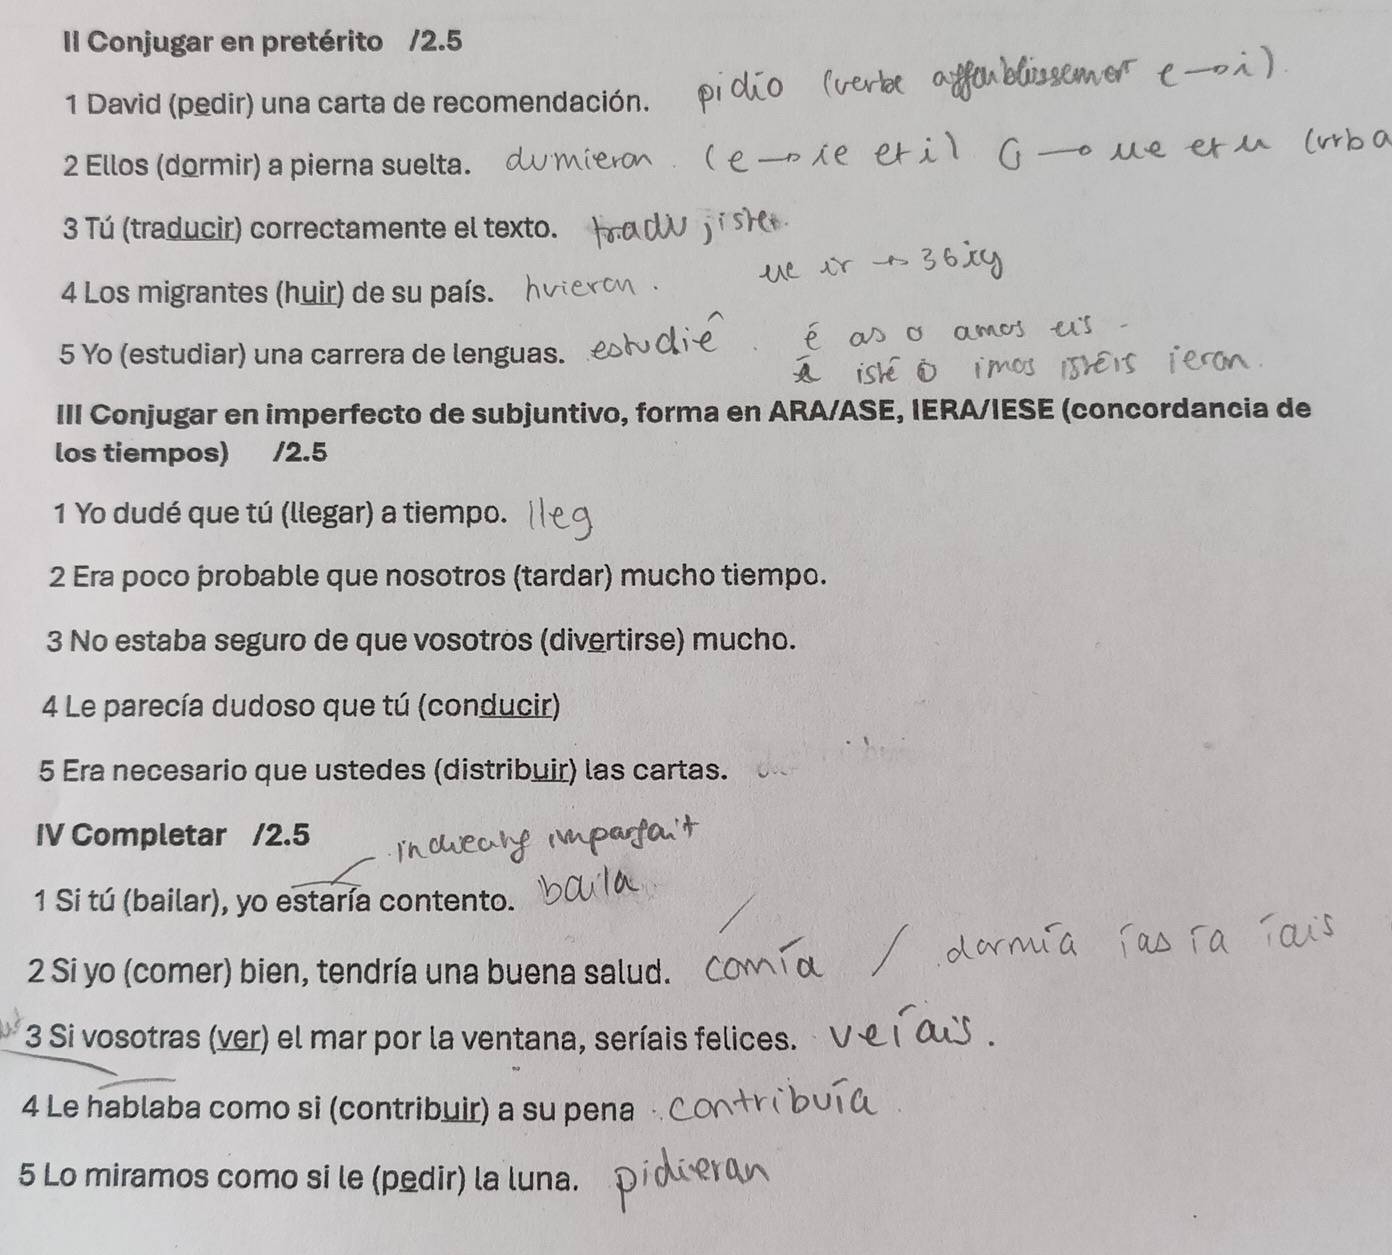 II Conjugar en pretérito /2.5
1 David (pedir) una carta de recomendación. pidío (verbe affaiblissemer e→i)
2 Ellos (dormir) a pierna suelta. dumieron. (e→ie et i) o→ue et u (vrba
3 Tú (traducir) correctamente el texto. tradujiste.
ue ir → 36 iy
4 Los migrantes (huir) de su país. huieron.
5 Yo (estudiar) una carrera de lenguas. estudié. é as o amos eis
isté ió imos isteis ieron.
III Conjugar en imperfecto de subjuntivo, forma en ARA/ASE, IERA/IESE (concordancia de
los tiempos) /2.5
1 Yo dudé que tú (llegar) a tiempo. lleg
2 Era poco probable que nosotros (tardar) mucho tiempo.
3 No estaba seguro de que vosotros (divertirse) mucho.
4 Le parecía dudoso que tú (conducir)
5 Era necesario que ustedes (distribuir) las cartas.
IV Completar /2.5
imparfait
1 Si tú (bailar), yo estaría contento. baila
2 Si yo (comer) bien, tendría una buena salud. comía / dormía ías ía íais
3 Si vosotras (ver) el mar por la ventana, seríais felices. veíais.
4 Le hablaba como si (contribuir) a su pena. contribuía
5 Lo miramos como si le (pedir) la luna. pidieran